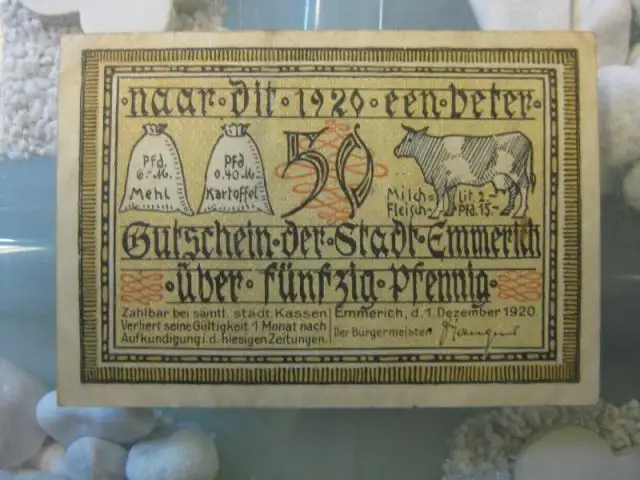 ·naar·dit·1920·een·beter·
Pfd.
6.-M.
Mehl
Pfd.
0.40 M.
Kartoffel
50
Milch= Lit. 2.-
Fleisch= Pfd. 15.-
Gutschein·der·Stadt·Emmerich
·über·fünfzig·Pfennig·
Zahlbar bei sämtl. städt. Kassen
Verliert seine Gültigkeit 1 Monat nach
Aufkündigung i. d. hiesigen Zeitungen.
Emmerich, d. 1. Dezember 1920
Der Bürgermeister